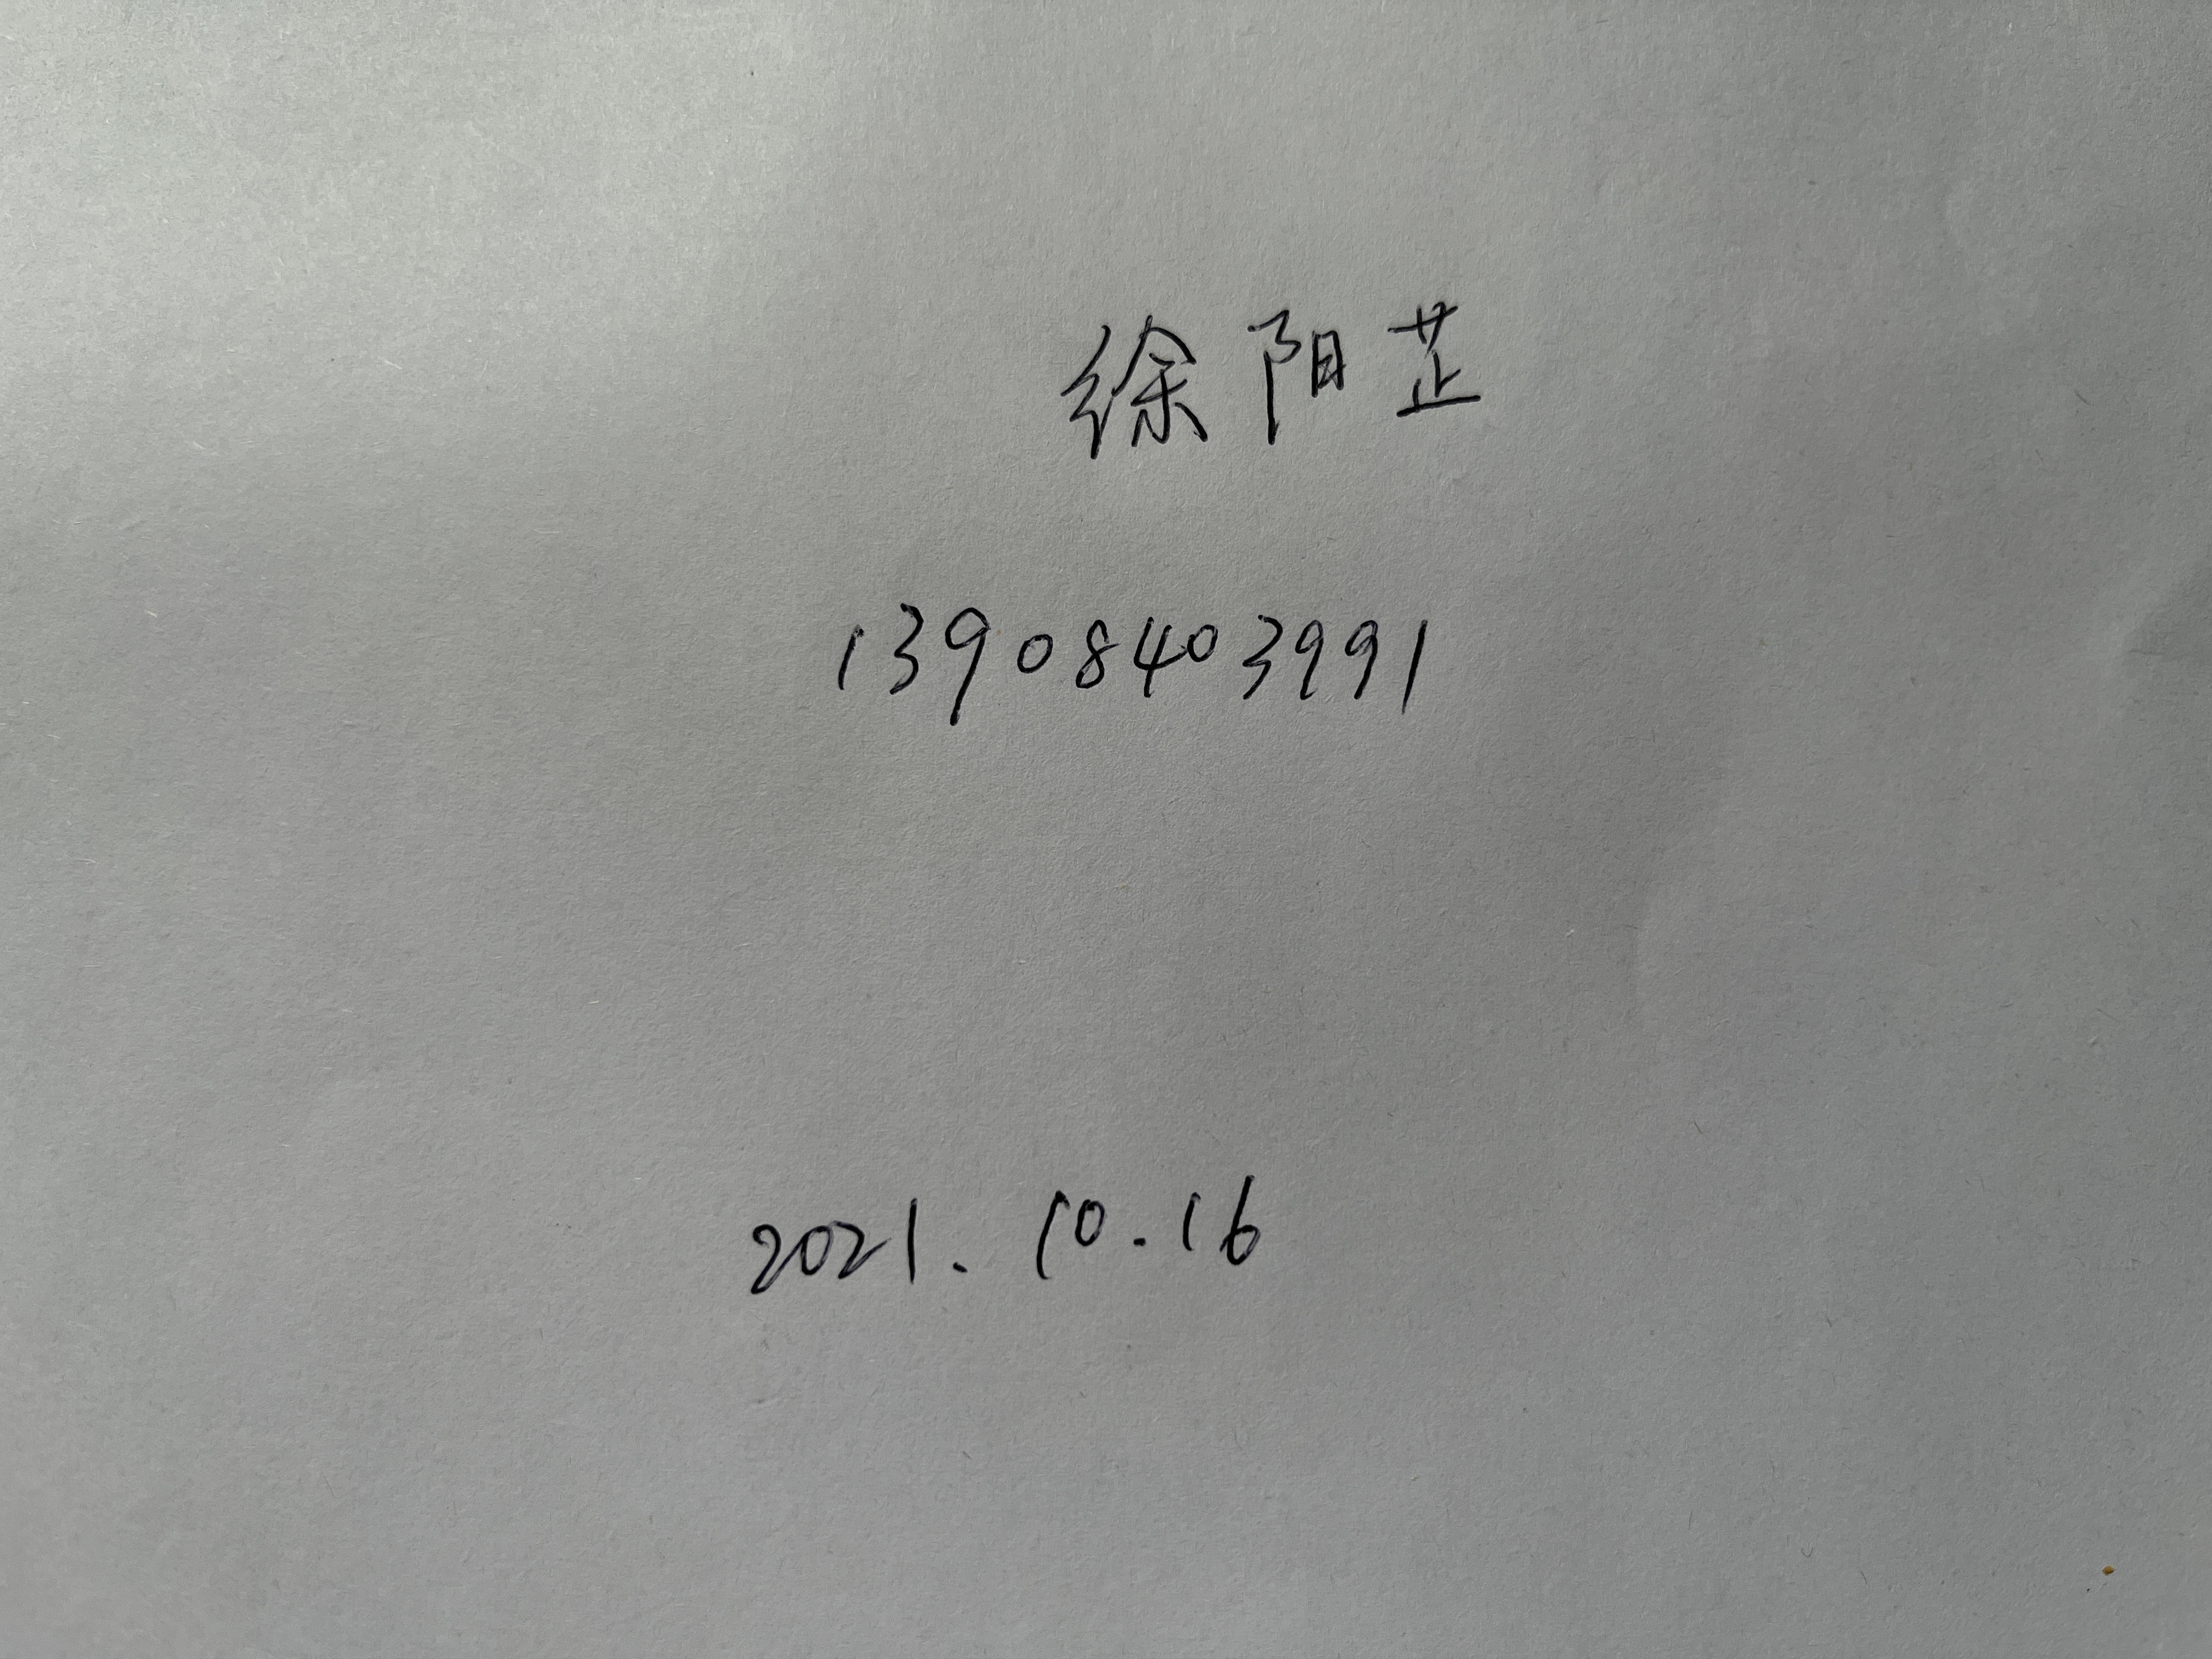 徐阳芷
13908403991
2021.10.16